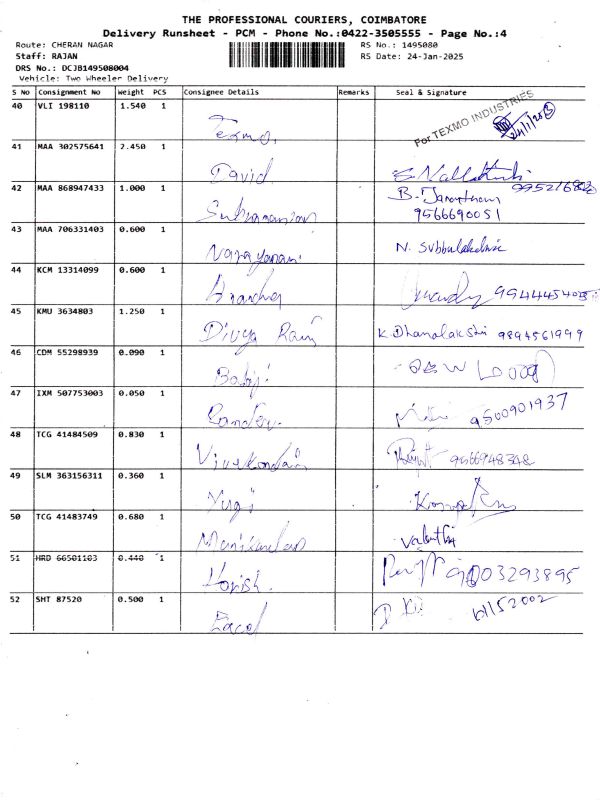 THE PROFESSIONAL COURIERS, COIMBATORE
Delivery Runsheet - PCM - Phone No.:0422-3505555 - Page No.:4
Route: CHERAN NAGAR
Staff: RAJAN
DRS No.: DCJB149508004
Vehicle: Two Wheeler Delivery
RS No.: 1495080
RS Date: 24-Jan-2025
S No Consignment No Weight PCS Consignee Details Remarks Seal & Signature
40 VLI 198110 1.540 1 Texmo, For TEXMO INDUSTRIES
41 MAA 302575641 2.450 1 David
42 MAA 868947433 1.000 1 Subramanian B. 9566690051
43 MAA 706331403 0.600 1 Narayanan. N. Subbulakshmi
44 KCM 13314099 0.600 1
45 KMU 3634803 1.250 1 Divya Rani K. Dhanalakshmi 9894561999
46 CDM 55298939 0.090 1 Balaji
47 IXM 507753003 0.050 1 9500901937
48 TCG 41484509 0.830 1 9566948348
49 SLM 363156311 0.360 1 Yugi
50 TCG 41483749 0.680 1 Manikandan
51 HRD 66501103 0.440 1 Harish. 9003293895
52 SHT 87520 0.500 1